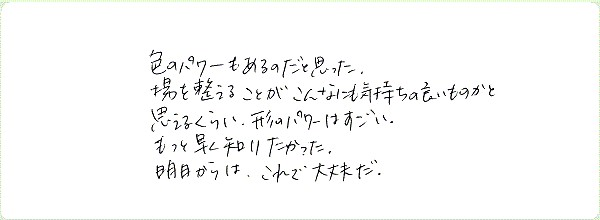 色のパワーもあるのだと思った.
場を整えることがこんなにも気持ちの良いものかと
思えるくらい、形のパワーはすごい.
もっと早く知りたかった.
明日からは、これで大丈夫だ.